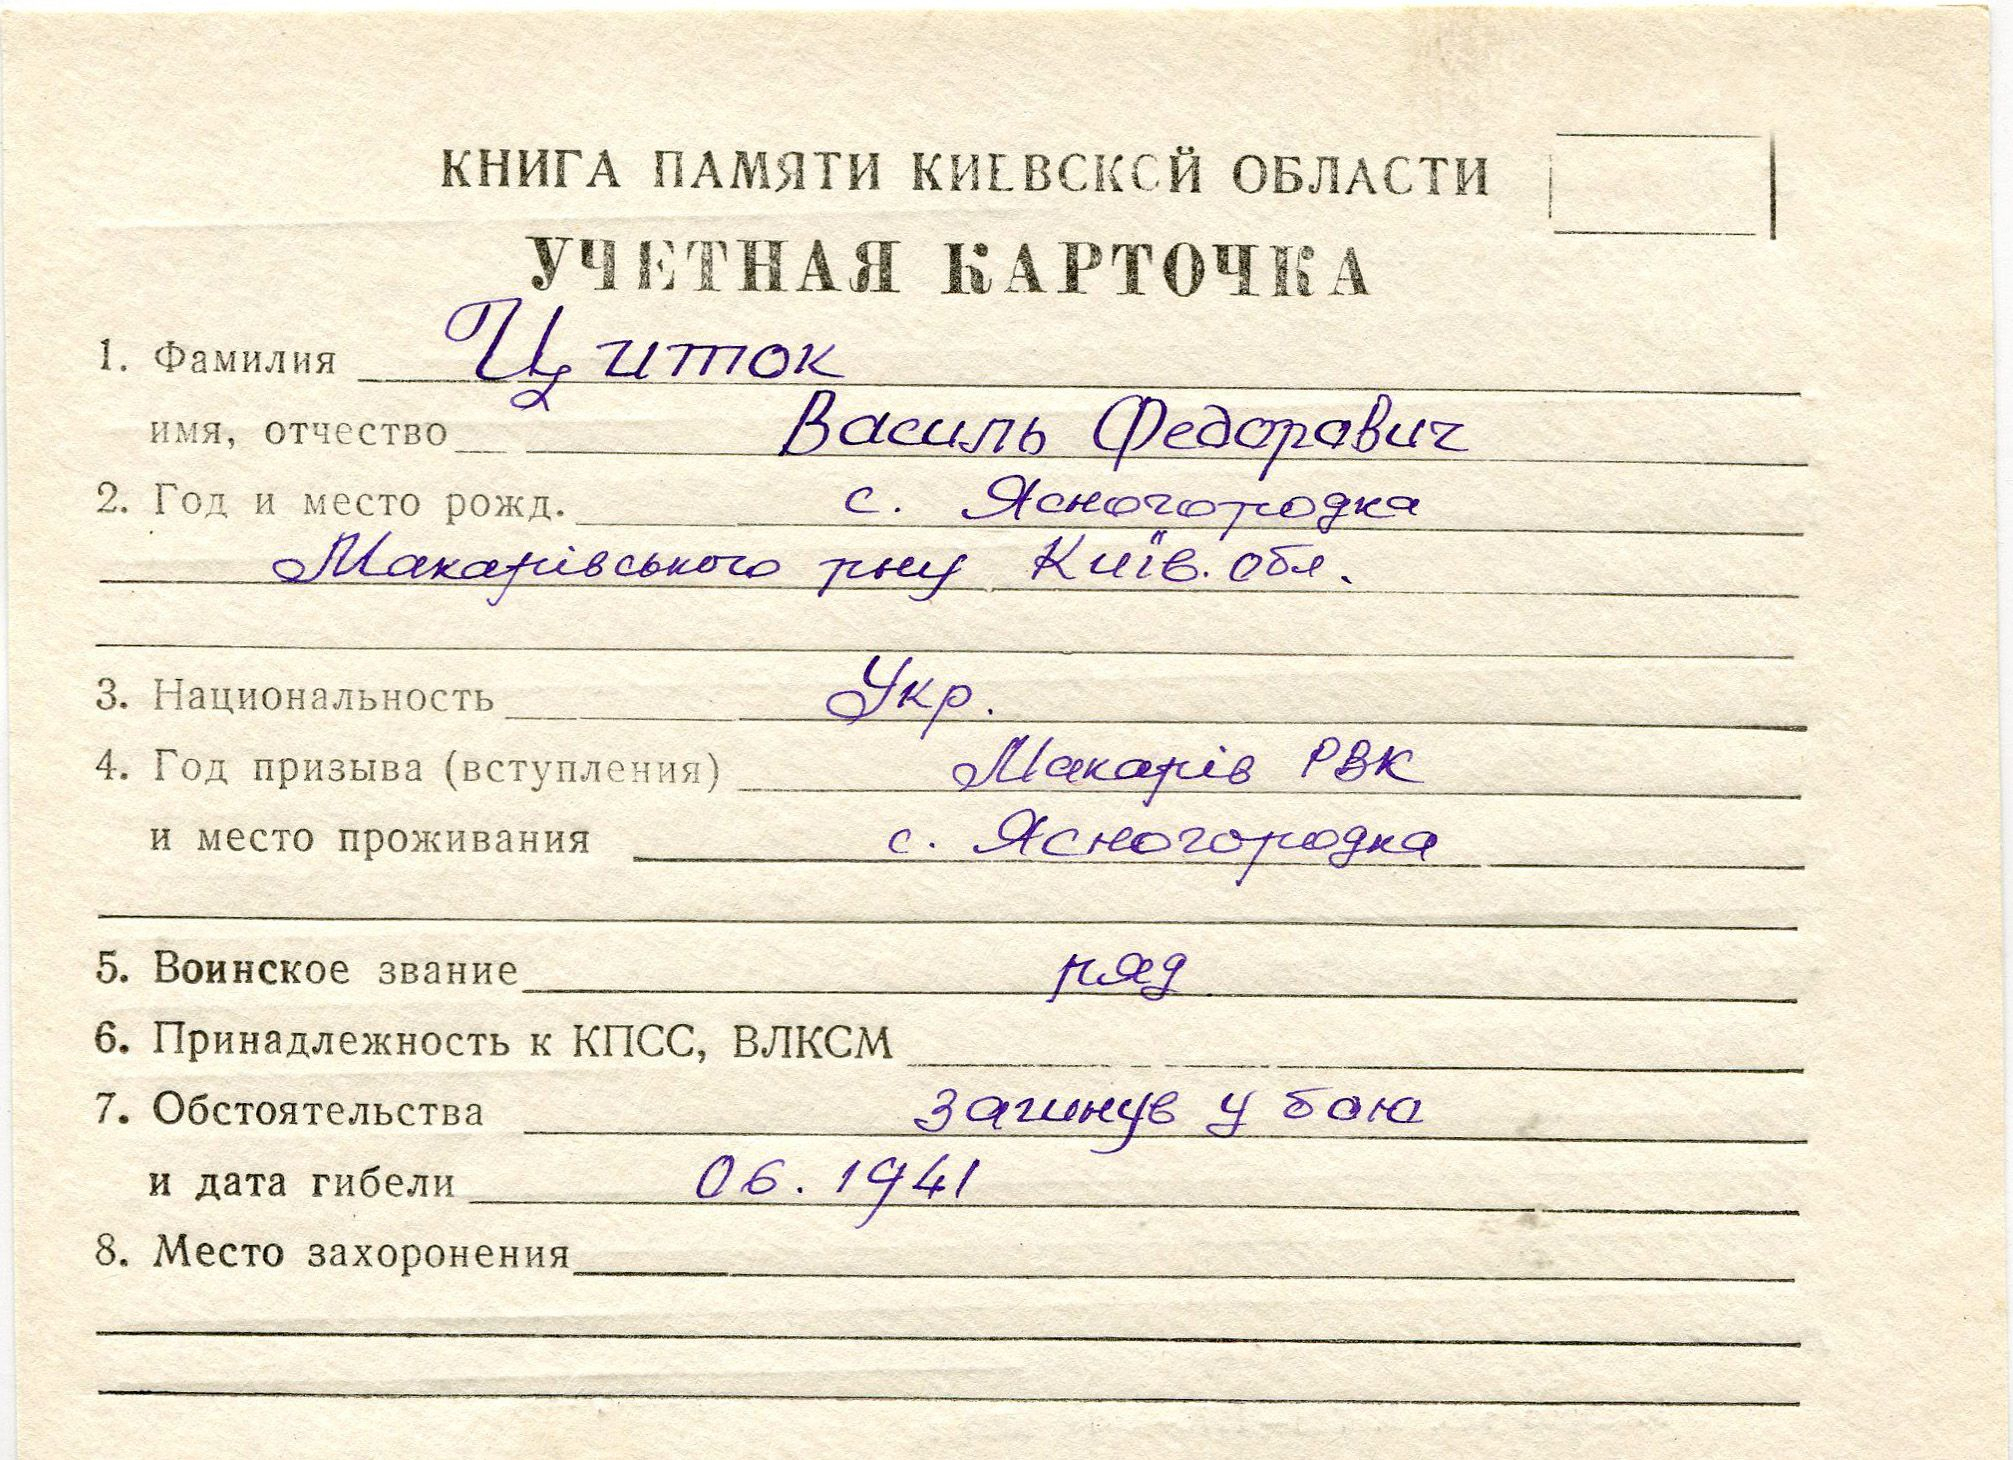 КНИГА ПАМЯТИ КИЕВСКОЙ ОБЛАСТИ
УЧЕТНАЯ КАРТОЧКА
1. Фамилия Циток
имя, отчество Василь Федорович
2. Год и место рожд. с. Ясногородка
Макарівського рну Київ. обл.
3. Национальность Укр.
4. Год призыва (вступления) Макарів РВК
и место проживания с. Ясногородка
5. Воинское звание ряд
6. Принадлежность к КПСС, ВЛКСМ
7. Обстоятельства загинув у бою
и дата гибели 06.1941
8. Место захоронения